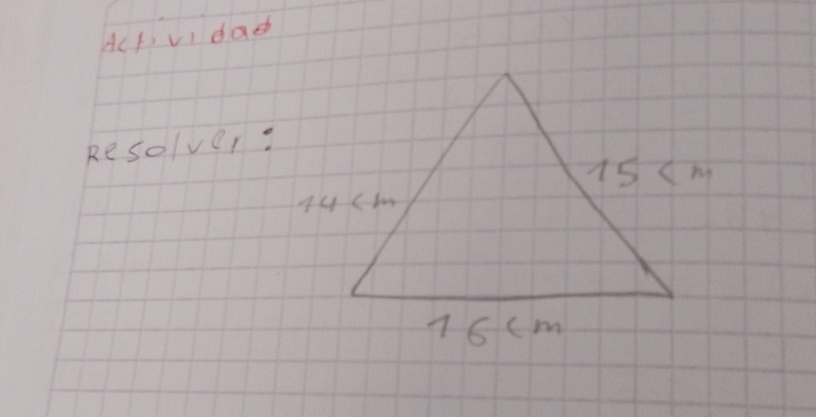 Actividad
Resolver:
14 cm
15 cm
16 cm